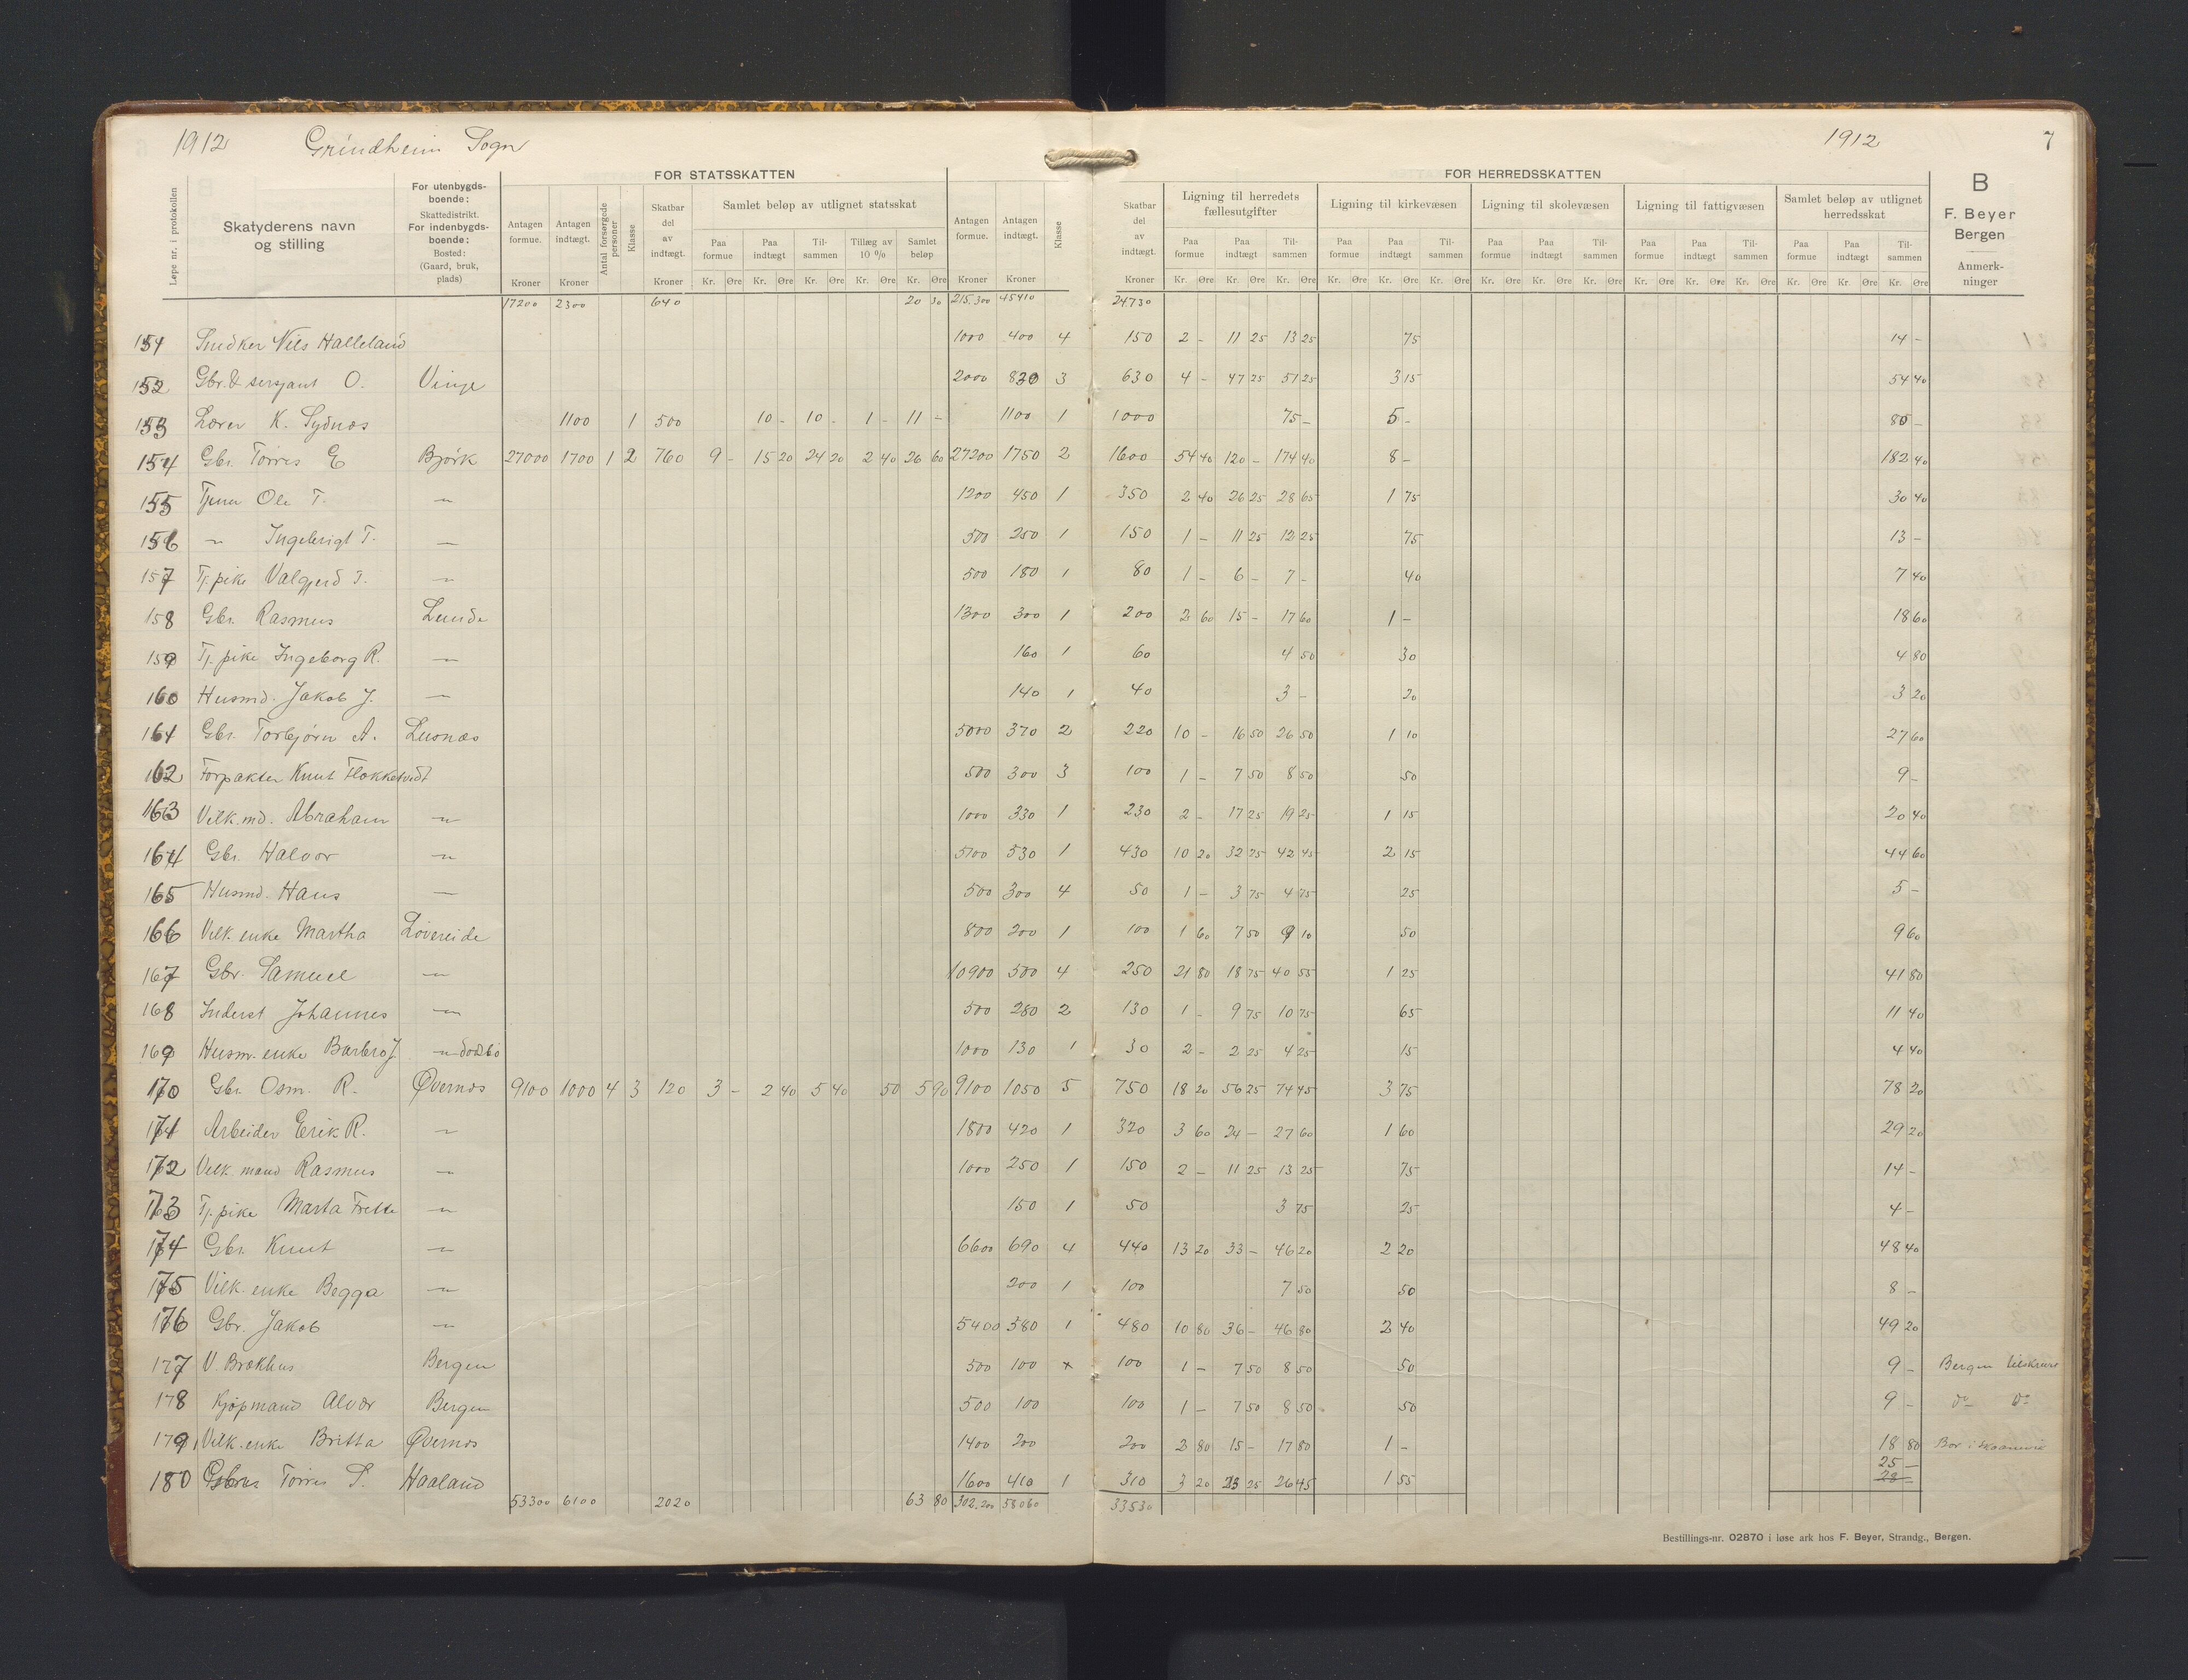 1912 Grindheim Sogn 1912 7
FOR STATSSKATTEN FOR HERREDSSKATTEN
Løpe nr. i protokollen
Skatyderens navn og stilling
For utenbygds-boende: Skattedistrikt. For indenbygds-boende: Bosted: (Gaard, bruk, plads)
Antagen formue. Kroner
Antagen indtægt. Kroner
Antal forsørgede personer
Klasse
Skatbar del av indtægt. Kroner
Samlet beløp av utlignet statsskat
Paa formue Kr. Øre Paa indtægt Kr. Øre Tilsammen Kr. Øre Tillæg av 10 % Kr. Øre Samlet beløp Kr. Øre
Antagen formue. Kroner
Antagen indtægt. Kroner
Klasse
Skatbar del av indtægt. Kroner
Ligning til herredets fællesutgifter
Paa formue Kr. Øre Paa indtægt Kr. Øre Til-sammen Kr. Øre
Ligning til kirkevæsen
Paa formue Kr. Øre Paa indtægt Kr. Øre Til-sammen Kr. Øre
Ligning til skolevæsen
Paa formue Kr. Øre Paa indtægt Kr. Øre Til-sammen Kr. Øre
Ligning til fattigvæsen
Paa formue Kr. Øre Paa indtægt Kr. Øre Til-sammen Kr. Øre
Samlet beløp av utlignet herredsskat
Paa formue Kr. Øre Paa indtægt Kr. Øre Til-sammen Kr. Øre
B
F. Beyer
Bergen
Anmerk-ninger
17200 2300 640 20 30 215.300 45410 24730
151 Snedker Nils Halleland 1000 400 4 150 2 - 11 25 13 25 75 14 -
152 Gbr. & sersjant O. Vinje 2000 830 3 630 4 - 47 25 51 25 3 15 54 40
153 Lærer K. Sydnæs 1100 1 500 10 - 10 - 1 - 11 - 1100 1 1000 75 - 5 - 80 -
154 Gbr. Torres E Bjørk 27000 1700 1 2 760 9 - 15 20 24 20 2 40 26 60 27200 1750 2 1600 54 40 120 - 174 40 8 - 182 40
155 Tjener Ole T. - " - 1200 450 1 350 2 40 26 25 28 65 1 75 30 40
156 - " - Ingebrigt T. - " - 500 250 1 150 1 - 11 25 12 25 75 13 -
157 Tj. pike Valgjerd T. - " - 500 180 1 80 1 - 6 - 7 - 40 7 40
158 Gbr. Rasmus Lunde 1300 300 1 200 2 60 15 - 17 60 1 - 18 60
159 Tj. pike Ingeborg R. - " - 160 1 60 4 50 30 4 80
160 Husmd. Jakob J. - " - 140 1 40 3 - 20 3 20
161 Gbr. Torbjørn A. Lusnæs 5000 370 2 220 10 - 16 50 26 50 1 10 27 60
162 Forpakter Knut Flokketvedt 500 300 3 100 1 - 7 50 8 50 50 9 -
163 Vilk. md. Abraham - " - 1000 330 1 230 2 - 17 25 19 25 1 15 20 40
164 Gbr. Halvor - " - 5100 530 1 430 10 20 32 25 42 45 2 15 44 60
165 Husmd. Hans - " - 500 300 4 50 1 - 3 75 4 75 25 5 -
166 Vilk. enke Martha Løvereide 800 200 1 100 1 60 7 50 9 10 50 9 60
167 Gbr. Samuel - " - 10900 500 4 250 21 80 18 75 40 55 1 25 41 80
168 Inderst Johannes - " - 500 280 2 130 1 - 9 75 10 75 65 11 40
169 Husm. enke Barbro J. - " - 1000 130 1 30 2 - 2 25 4 25 15 4 40
170 Gbr. Osm. R. Øvernæs 9100 1000 4 3 120 3 - 2 40 5 40 50 5 90 9100 1050 5 750 18 20 56 25 74 45 3 75 78 20
171 Arbeider Erik R. - " - 1800 420 1 320 3 60 24 - 27 60 1 60 29 20
172 Vilk. mand Rasmus - " - 1000 250 1 150 2 - 11 25 13 25 75 14 -
173 Tj. pike Marta Frette - " - 150 1 50 3 75 25 4 -
174 Gbr. Knut - " - 6600 690 4 440 13 20 33 - 46 20 2 20 48 40
175 Vilk. enke Begga - " - 200 1 100 7 50 50 8 -
176 Gbr. Jakob - " - 5400 580 1 480 10 80 36 - 46 80 2 40 49 20
177 V. Brækhus Bergen 500 100 x 100 1 - 7 50 8 50 50 9 - Bergen
178 Kjøpmand Alvær Bergen 500 100 100 1 - 7 50 8 50 50 9 - do do
179 Vilk. enke Britta Øvernæs 1400 200 200 2 80 15 - 17 80 1 - 18 80 Bor i Skaanevik
180 Gbr. Torres S. Haaland 1600 410 1 310 3 20 23 25 26 45 1 55 25 - 28 -
53300 6100 2020 63 80 302.200 58060 33530
Bestillings-nr. 02870 i løse ark hos F. Beyer, Strandg., Bergen.